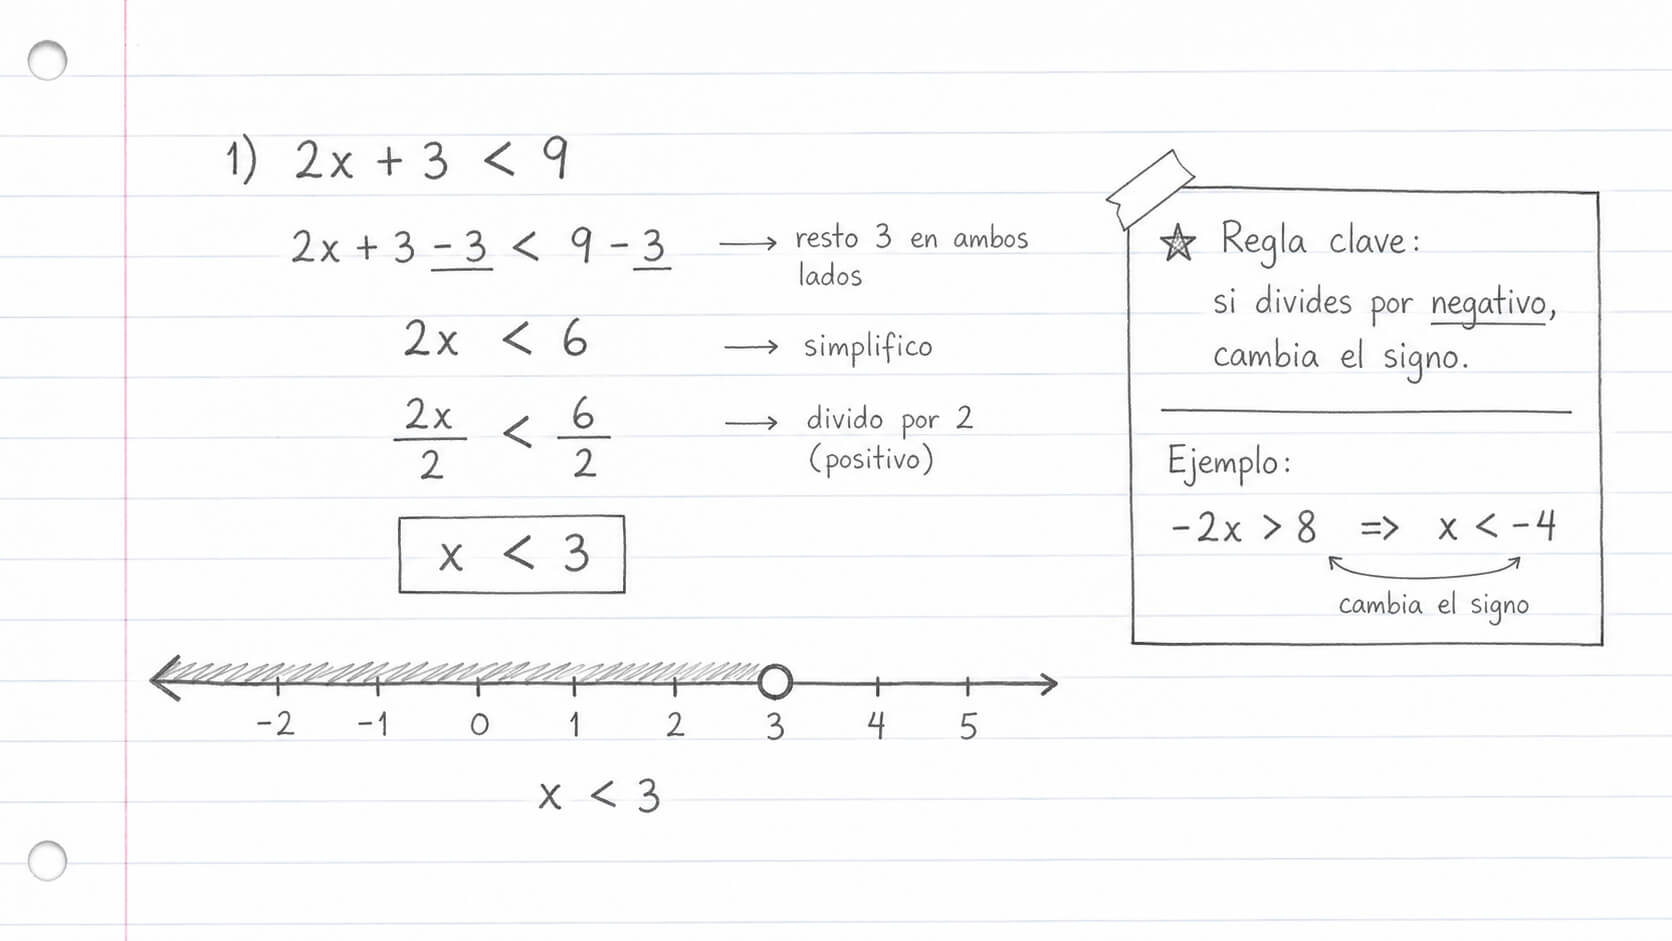 1) 2x + 3 < 9
2x + 3 - 3 < 9 - 3 → resto 3 en ambos
lados
2x < 6 → simplifico
2x/2 < 6/2 → divido por 2
(positivo)
x < 3
-2 -1 0 1 2 3 4 5
x < 3
☆ Regla clave:
si divides por negativo,
cambia el signo.
Ejemplo:
-2x > 8 => x < -4
cambia el signo